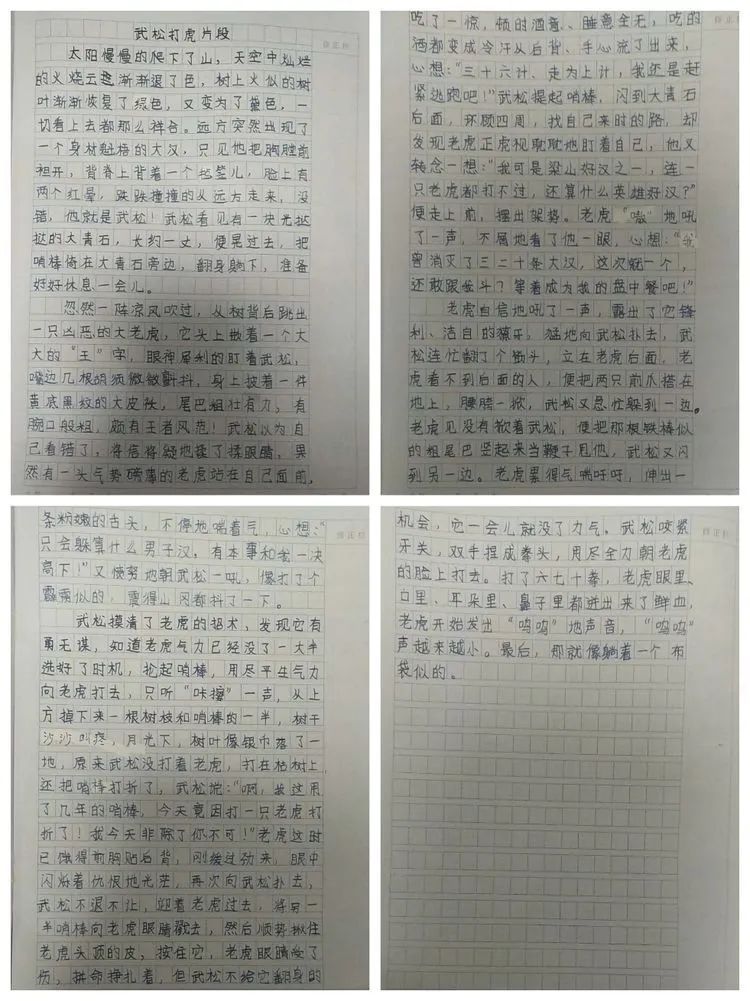 武松打虎片段
太阳慢慢的爬下了山，天空中灿烂
的火烧云渐渐退了色，树上火似的树
叶渐渐恢复了绿色，又变为了墨色，一
切看上去都那么祥合。远方突然出现了
一个身材魁梧的大汉，只见他把胸膛前
袒开，背脊上背着一个毡笠儿，脸上有
两个红晕，跌跌撞撞的从远方走来，没
错，他就是武松！武松看见有一块光挞
挞的大青石，长约一丈，便晃过去，把
哨棒倚在大青石旁边，翻身躺下，准备
好好休息一会儿。
忽然一阵凉风吹过，从树背后跳出
一只凶恶的大老虎，它头上散着一个大
大的“王”字，眼神犀利的盯着武松，
嘴边几根胡须微微颤抖，身上披着一件
黄底黑纹的大皮袄，尾巴粗壮有力，有
腕口般粗，颇有王者风范！武松以为自
己看错了，将信将疑地揉了揉眼睛，果
然有一头气势磅薄的老虎站在自己面前，
吃了一惊，顿时酒意、睡意全无，吃的
酒都变成冷汗从后背、手心流了出来，
心想：“三十六计、走为上计，我还是赶
紧逃跑吧！”武松提起哨棒，闪到大青石
后面，环顾四周，找自己来时的路，却
发现老虎正虎视眈眈地盯着自己，他又
转念一想：“我可是梁山好汉之一，连一
只老虎都打不过，还算什么英雄好汉？”
便走上前，摆出架势。老虎“嗷”地吼
了一声，不屑地看了他一眼，心想：“我
曾消灭了三二十条大汉，这次就一个，
还敢跟我斗？等着成为我的盘中餐吧！”
老虎自信地吼了一声，露出了它锋
利、洁白的獠牙，猛地向武松扑去，武
松连忙翻了个跟头，立在老虎后面，老
虎看不到后面的人，便把两只前爪搭在
地上，腰胯一掀，武松又急忙躲到一边。
老虎见没有掀着武松，便把那根铁棒似
的粗尾巴竖起来当鞭子甩他，武松又闪
到另一边。老虎累得气喘吁吁，伸出一
条粉嫩的舌头，不停地喘着气，心想：“
只会躲算什么男子汉。有本事和我一决
高下！”又使劲地朝武松一吼，像打了个
霹雳似的，震得山冈都抖了一下。
武松摸清了老虎的招术，发现它有
勇无谋，知道老虎气力已经没了一大半
选好了时机，抡起哨棒，用尽平生气力
向老虎打去，只听“咔擦”一声，从上
方掉下来一根树枝和哨棒的一半，树干
沙沙叫疼，月光下，树叶像银币落了一
地，原来武松没打着老虎，打在枯树上
还把哨棒打折了，武松说：“啊，我这用
了几年的哨棒，今天竟因打一只老虎打
折了！我今天非除了你不可！”老虎这时
已饿得前胸贴后背，刚缓过劲来，眼中
闪烁着仇恨地光茫，再次向武松扑去，
武松不退不让，迎着老虎过去，将另一
半哨棒向老虎眼睛戳去，然后顺势揪住
老虎头顶的皮，按住它，老虎眼睛受了
伤，拼命挣扎着，但武松不给它翻身的
机会，它一会儿就没了力气。武松咬紧
牙关，双手捏成拳头，用尽全力朝老虎
的脸上打去。打了六七十拳，老虎眼里、
口里、耳朵里、鼻子里都迸出来了鲜血，
老虎开始发出“呜呜”地声音，“呜呜”
声越来越小。最后，那就像躺着一个布
袋似的。